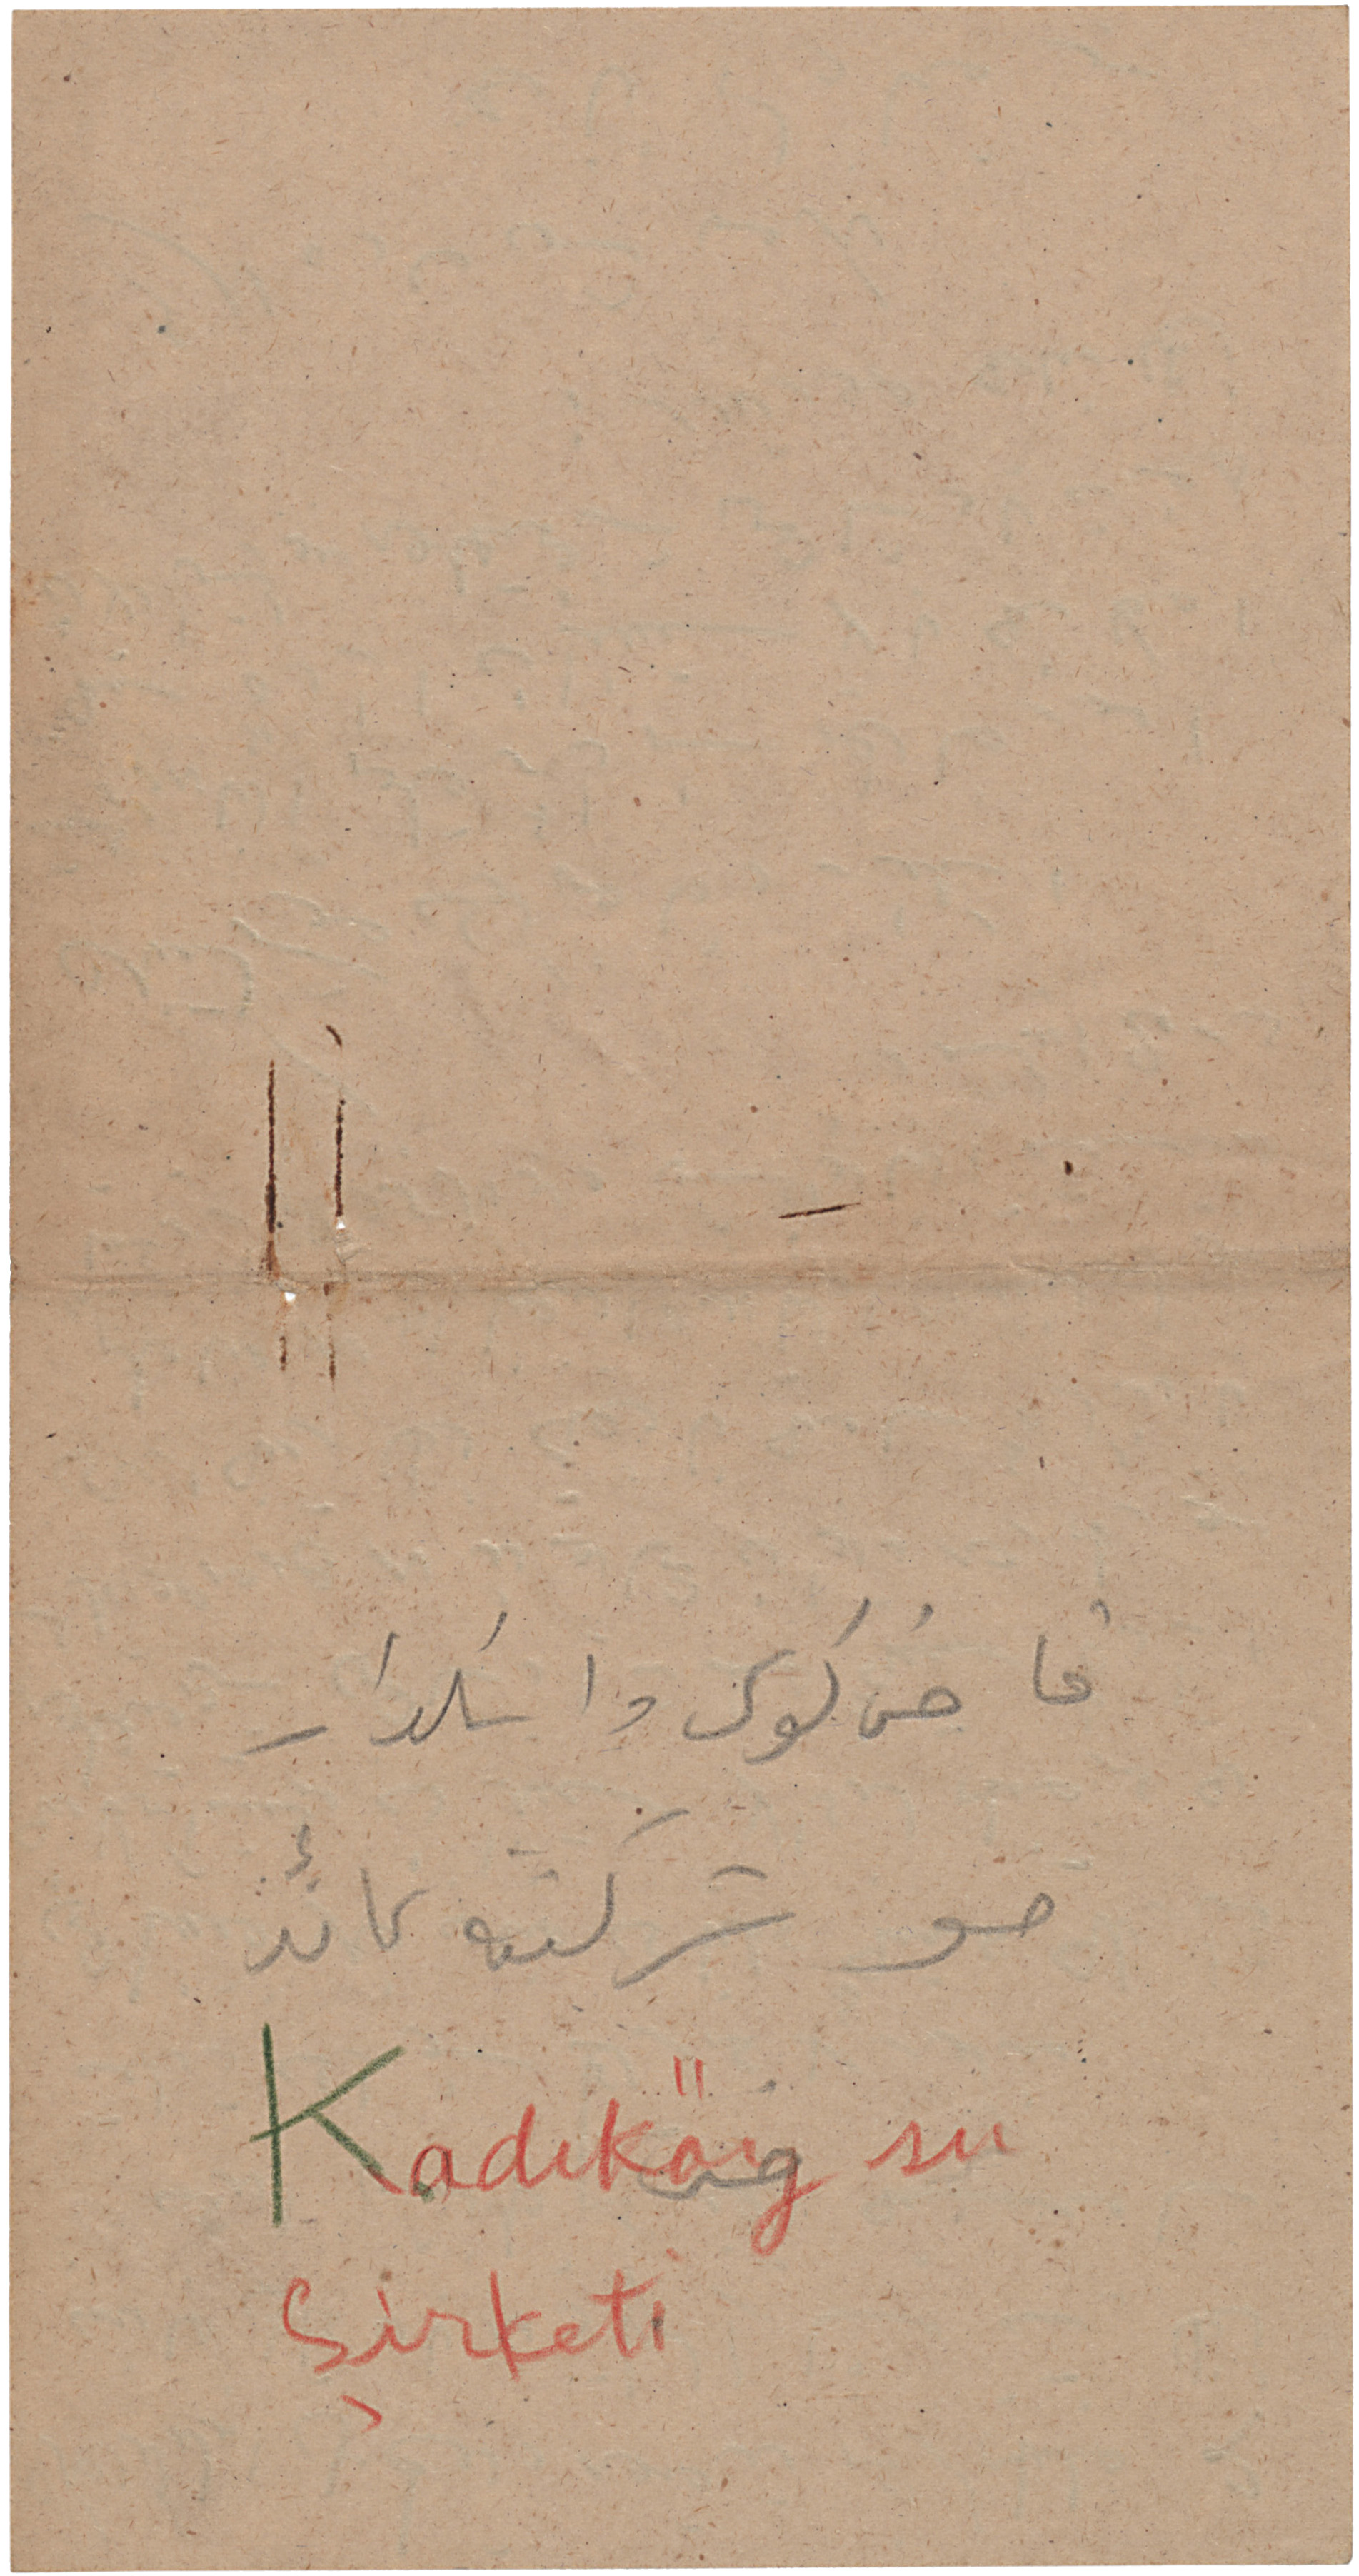 قاضى كوى واسكدار
صو شركتنه عائد
Kadıköy su
Şirketi